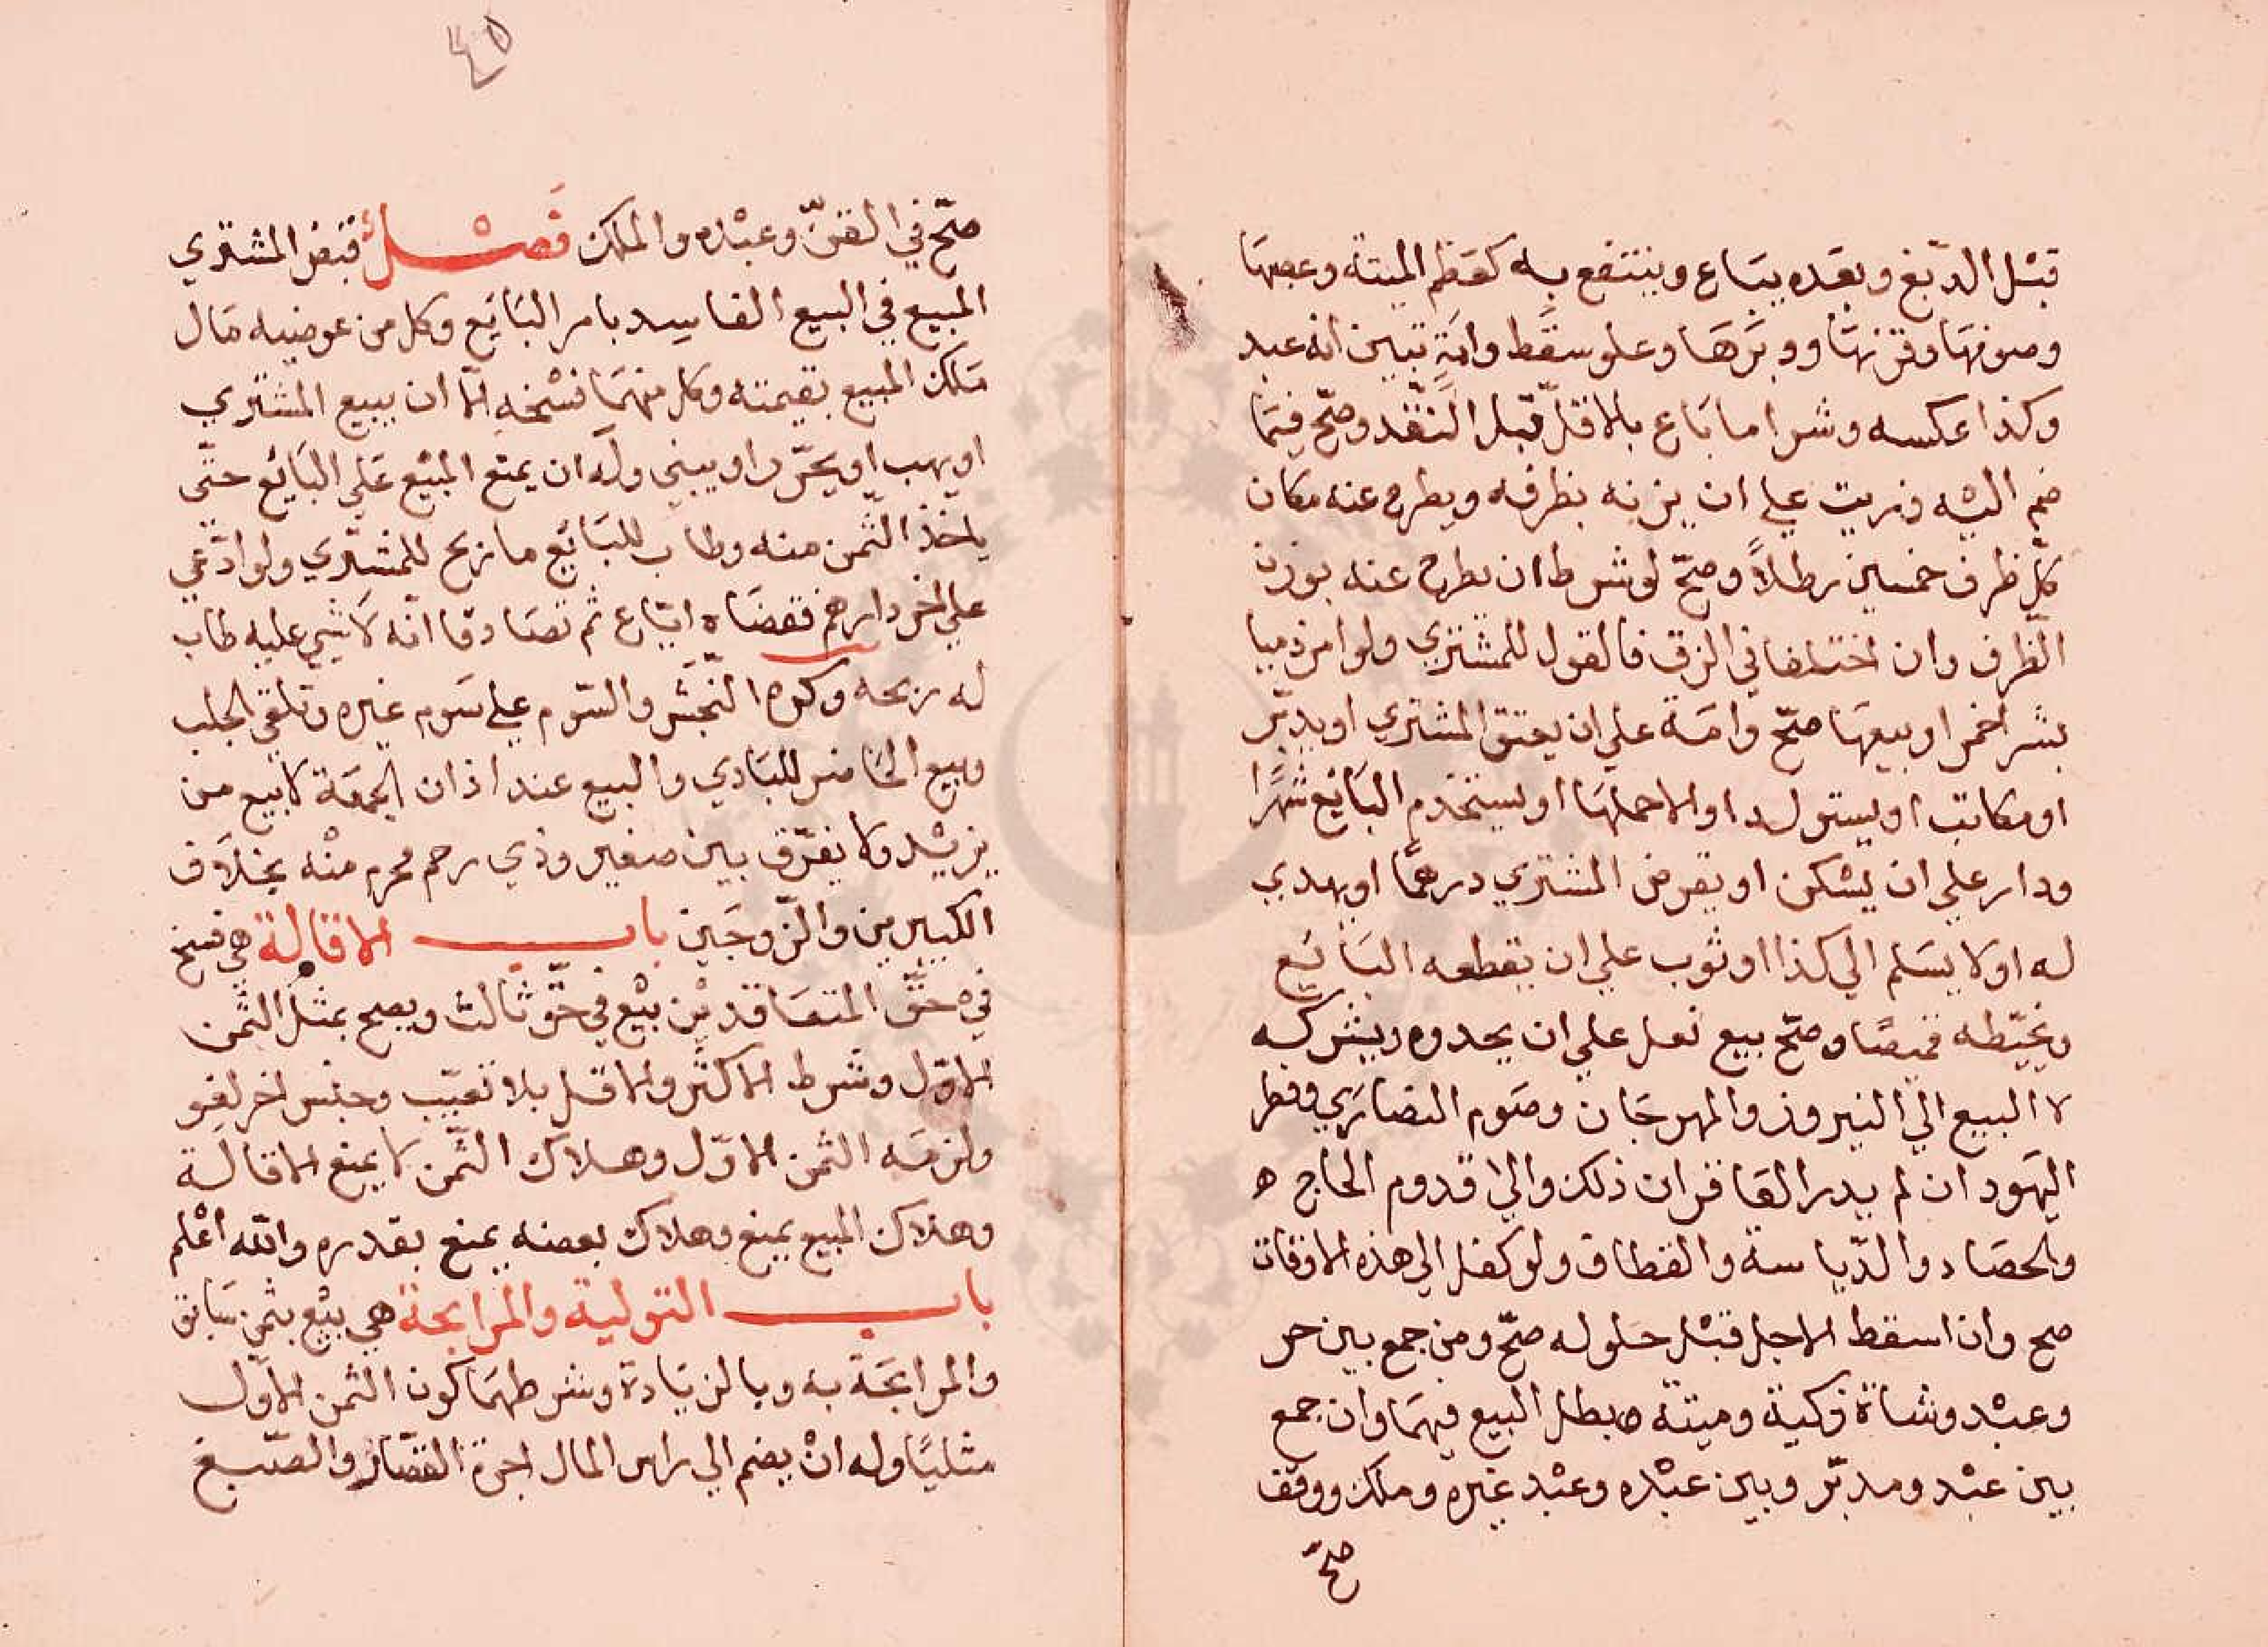 قبْل الدّبغ وبعَده يبَاع وينتفع به كعَظم الميتة وعصبهَا
وصوفهَا وقرنهَا ووبَرهَا وعلو سقَط وامَةٍ تبين انه عبد
وكذا عكسه وشرا ما بَاع بالاقلّ قبْل النّقد وصَحّ فيمَا
ضم اليْه وزيت علي ان يزنه بظرفه ويطرح عنه مكان
كلّ ظرف خمسين رطلاً وصَحّ لو شرط ان يطرح عنه بوزن
الظّرف وان اختلفا في الزق فالقول للمشتري ولو امر ذميا
بشرا خمر او بيعهَا صَحّ وامَة علي ان يعتق المشتري او يدبّر
او مكاتب او يستولد او الا حملهَا او يستخدم البَائع شهْرًا
ودار علي ان يسْكن او يقرض المشتري درهمًا او يهدي
له او لا يسَلم الي كذا او ثوب علي ان يقطعه البَائع
ويخيّطه قميصًا وصَحّ بيع نعل علي ان يحدوه ويشركه
لا البيع الي النيروز والمهرجَان وصَوم النصَارَي وفطر
اليَهود ان لم يدر العَاقران ذلك والي قدوم الحاج ه
والحصَاد والدّياسة والقطاف ولو كفل الي هذه الاوقات
صح وان اسقط الاجل قبْل حلوله صَحّ ومن جمع بين حر
وعبْد وشاة ذكية وميتة ه بطل البيع فيهمَا وان جمع
بين عبْد ومدبّر وبين عبْده وعبْد غيره وملك ووقف
صَحّ
٤٥
صَحّ في القنّ وعبْده والملك فَصْـــلٌ قبَضُ المشتري
المبيع في البيع الفاسِد بامر البَائع وكل من عوضيه مَال
مَلك المبيع بقيمته وكل منهمَا فسْخه الّا ان يبيع المشتري
او يهب او يحَرّر او يبني وله ان يمنع المبيْع عَلي البَائع حتّي
ياخذ الثّمن منه وطاب للبَائع ما ربح للمشتري ولو ادّعَي
علي اخر دارهم فقضَاه ايّاع ثم تصَادقا انّه لَا شَي عليه طاب
له ربحه وكره النّجَشُ والسّوم علي سَوم غيره وتلقي الجلب
وبيع الحَاضر للبَادي والبيع عند اذان الجمعَة لا بيع من
يزيْد ولا يفرّق بين صغير وذي رحم محرم منْه بخلَاف
الكبيرين والزّوجَين باب الاقالة هي فسخ
في حَقّ المتعَاقديْن بيْع في حَقّ ثالث ويصح بمثل الثّمن
الاوّل وشرط الاكثر والاقل بلا تعيّب وجنْس اخر لغو
ولزمَه الثمن الاوّل وهلاك الثّمن لا يمنع الاقالَة
وهلاك المبيع يمنع وهلاك بعضه يمنع بقدره والله اعْلم
باب التولية والمرابحة هي بيْع بثمن سَابق
والمرابحَة به وبالزيَادة وشرطهمَا كون الثمن الاوّل
مثليًا وله انْ يضم الي راس المال اجرة القصّار والصّبغ